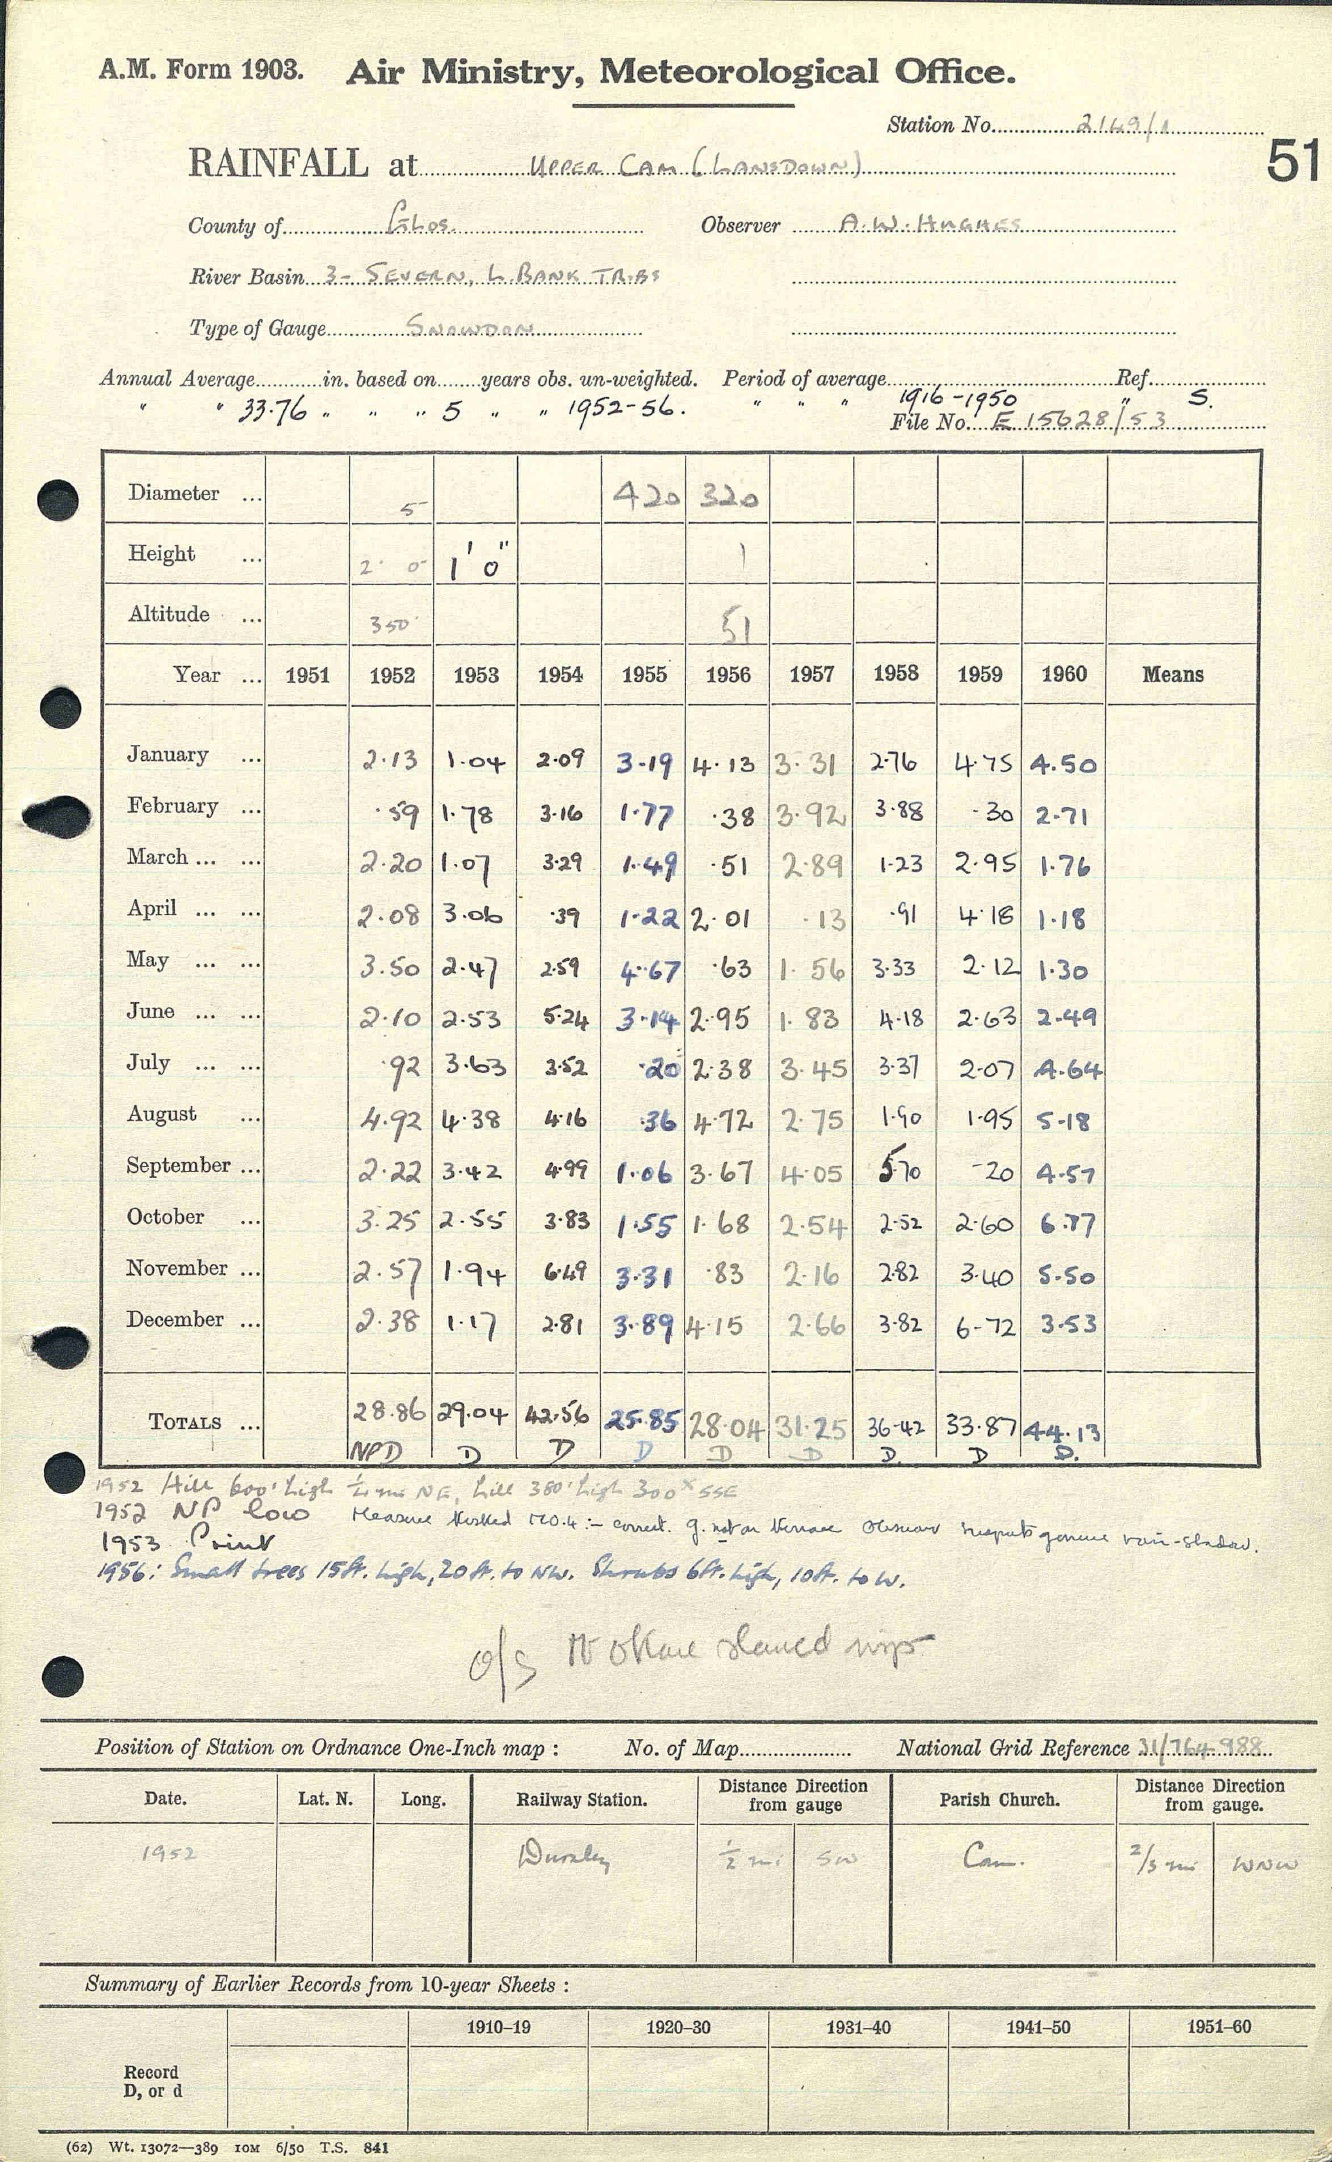 A.M. Form 1903. Air Ministry, Meteorological Office.
Station No. 2149/1
RAINFALL at UPPER CAM (LANSDOWN) 51
County of Glos. Observer A.W. HUGHES
River Basin 3- SEVERN, L. BANK TRIBS
Type of Gauge SNOWDON
Annual Average in. based on years obs. un-weighted. Period of average Ref.
" " 33.76 " " " 5 " " 1952-56. " " " 1916-1950 " S.
File No. E 15628/53
Diameter ... 5 420 320
Height ... 2' 0 1' 0" 1
Altitude ... 350' 51
Year ... 1951 1952 1953 1954 1955 1956 1957 1958 1959 1960 Means
January ... 2.13 1.04 2.09 3.19 4.13 3.31 2.76 4.75 4.50
February ... .59 1.78 3.16 1.77 .38 3.92 3.88 .30 2.71
March ... ... 2.20 1.07 3.29 1.49 .51 2.89 1.23 2.95 1.76
April ... ... 2.08 3.06 .39 1.22 2.01 .13 .91 4.18 1.18
May ... ... 3.50 2.47 2.59 4.67 .63 1.56 3.33 2.12 1.30
June ... ... 2.10 2.53 5.24 3.14 2.95 1.83 4.18 2.63 2.49
July ... ... .92 3.63 3.52 .20 2.38 3.45 3.37 2.07 4.64
August ... 4.92 4.38 4.16 .36 4.72 2.75 1.90 1.95 5.18
September ... 2.22 3.42 4.99 1.06 3.67 4.05 5.70 .20 4.57
October ... 3.25 2.55 3.83 1.55 1.68 2.54 2.52 2.60 6.77
November ... 2.57 1.94 6.49 3.31 .83 2.16 2.82 3.40 5.50
December ... 2.38 1.17 2.81 3.89 4.15 2.66 3.82 6.72 3.53
TOTALS ... 28.86 29.04 42.56 25.85 28.04 31.25 36.42 33.87 44.13
NPD D D D D D D. D D.
1952 Hill 600' high ½ mi NE, hill 380' high 300x SSE
1952 NP low Measure M.O.4 :- correct. g. not on Terrace Observer suspects genuine rain-shadow.
1953 Print
1956: Small trees 15ft. high, 20ft. to NW. Shrubs 6ft. high, 10ft. to W.
o/s
Position of Station on Ordnance One-Inch map : No. of Map National Grid Reference 31/764 988
Date. Lat. N. Long. Railway Station. Distance Direction from gauge Parish Church. Distance Direction from gauge.
1952 Dursley ½ mi SW Cam. 2/3 mi WNW
Summary of Earlier Records from 10-year Sheets :
1910–19 1920–30 1931–40 1941–50 1951–60
Record
D, or d
(62) Wt. 13072—389 10M 6/50 T.S. 841